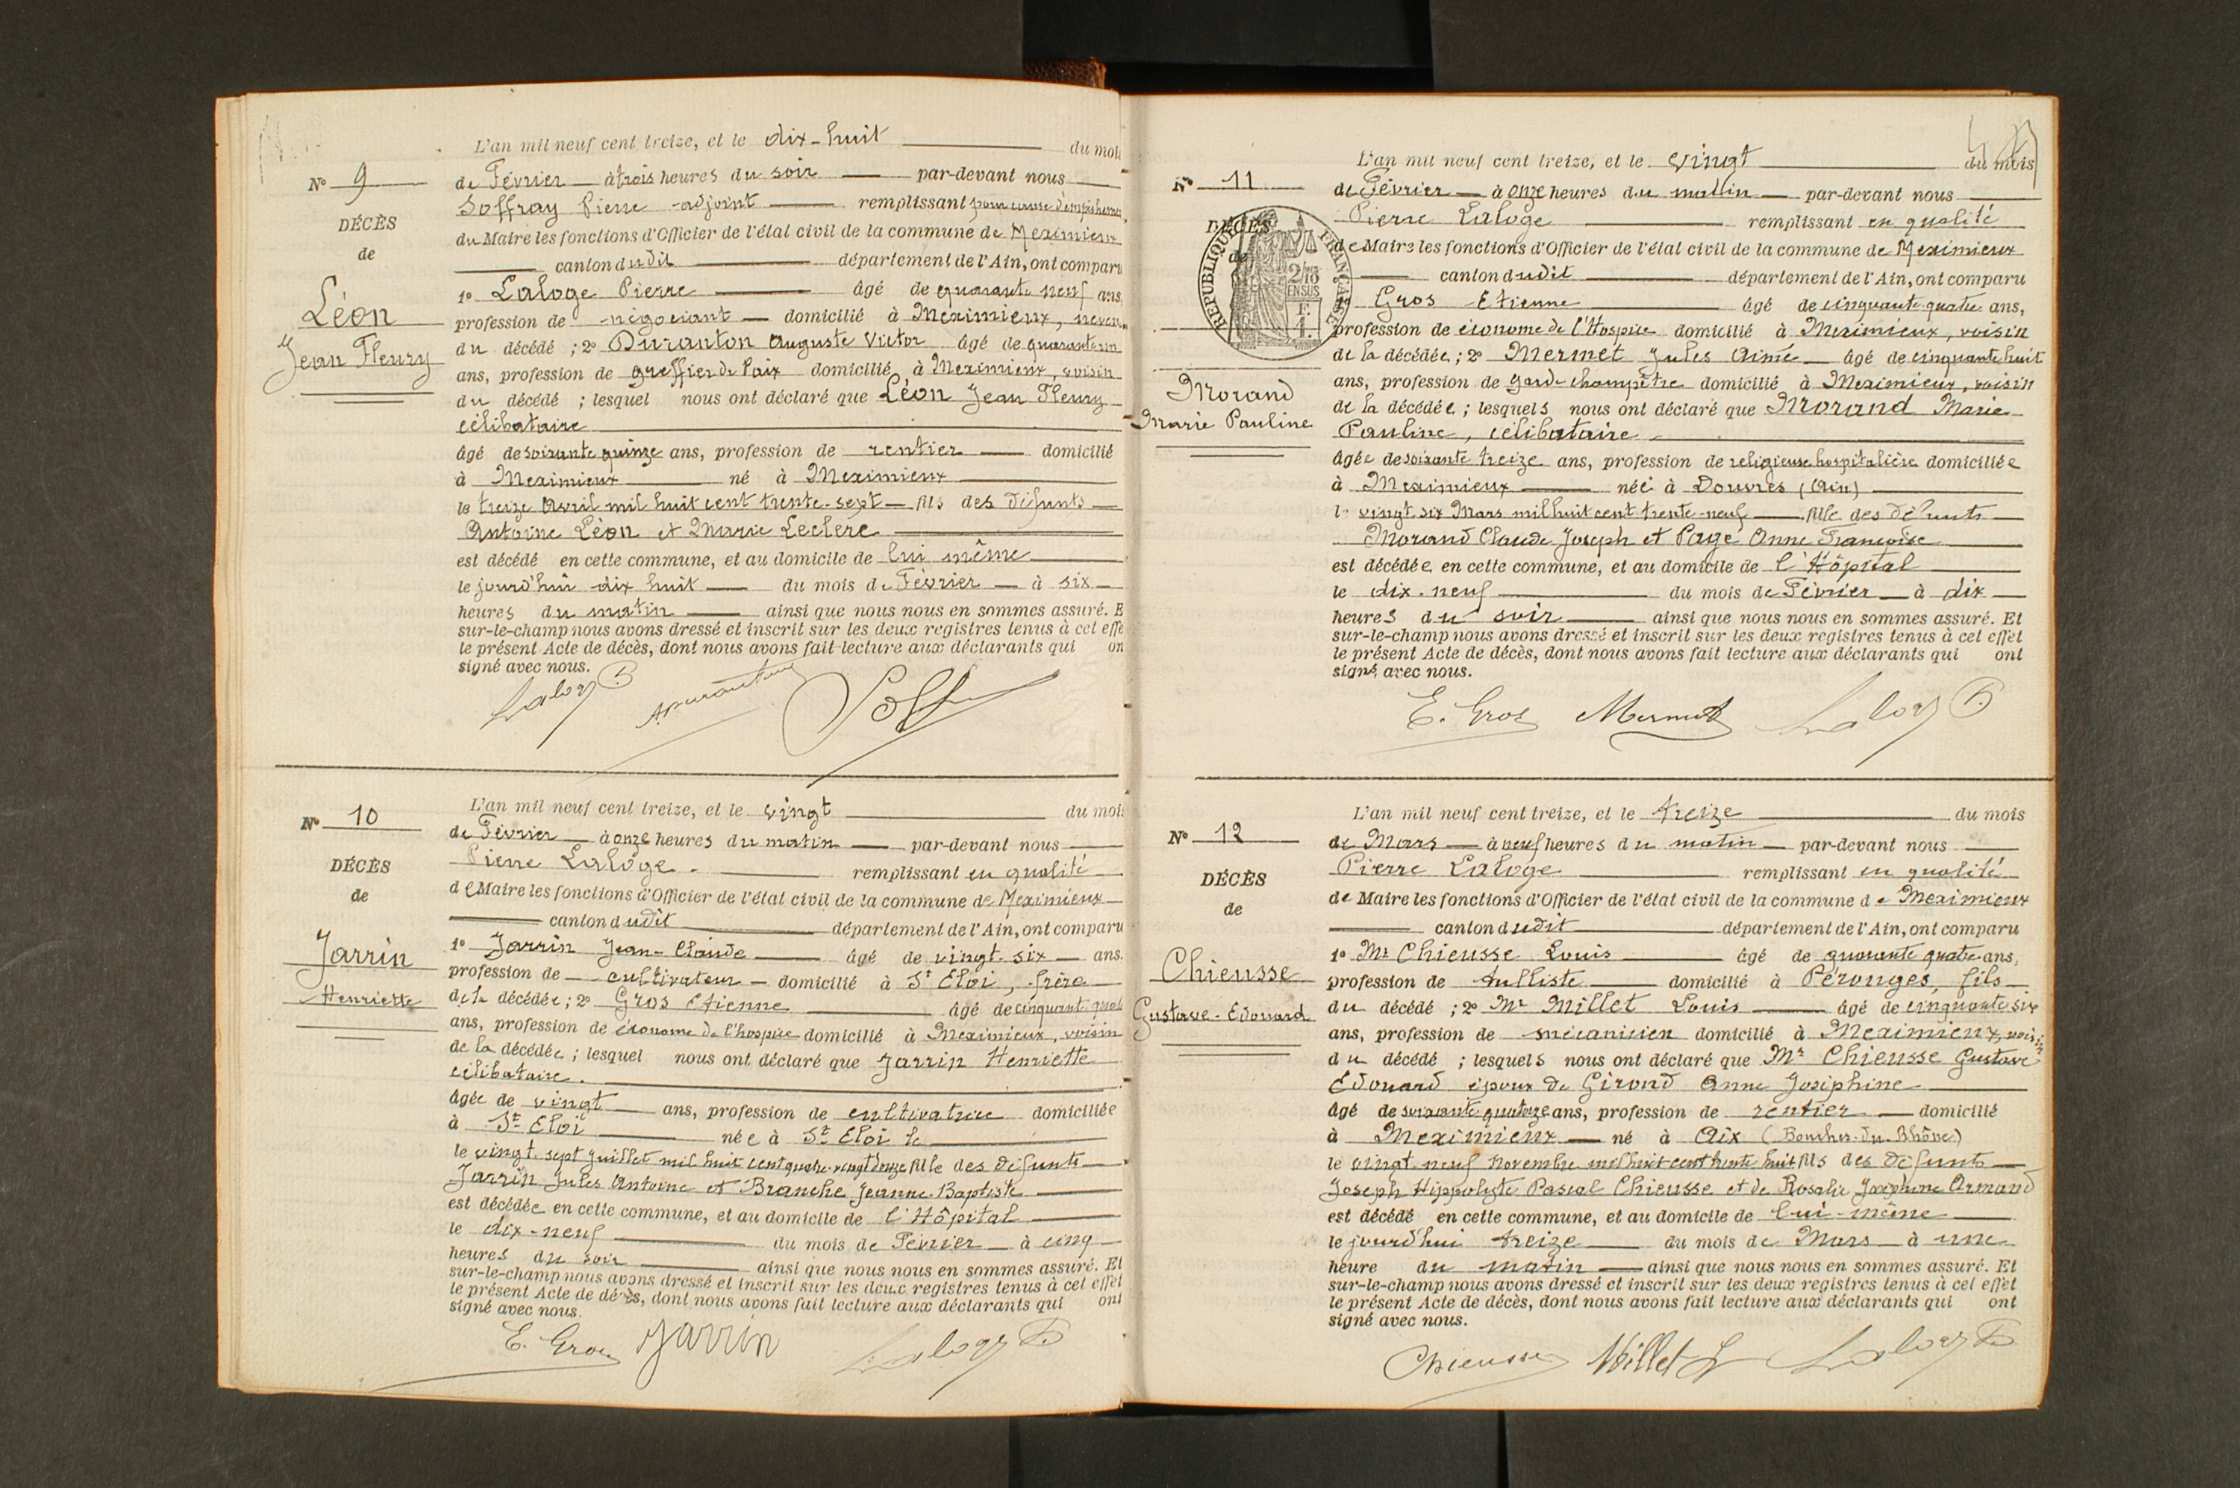 L'an mil neuf cent treize, et le dix-huit du mois
No 9
de Février à trois heures du soir par-devant nous
Soffray Pierre adjoint remplissant pour cause d'empêchement
DÉCÈS
du Maire les fonctions d'Officier de l'état civil de la commune de Meximieux
de
canton dudit département de l'Ain, ont comparu
Léon
1o Laloge Pierre âgé de quarante neuf ans,
profession de négociant domicilié à Meximieux, neveu
Jean Fleury
du décédé ; 2o Duranton Auguste Victor âgé de quarante un
ans, profession de greffier de Paix domicilié à Meximieux, voisin
du décédé ; lesquel nous ont déclaré que Léon Jean Fleury
célibataire
âgé de soixante quinze ans, profession de rentier domicilié
à Meximieux né à Meximieux
le treize Avril mil huit cent trente-sept fils des défunts
Antoine Léon et Marie Leclerc
est décédé en cette commune, et au domicile de lui même
le jourd'hui dix huit du mois de Février à six
heures du matin ainsi que nous nous en sommes assuré. E
sur-le-champ nous avons dressé et inscrit sur les deux registres tenus à cet effe
le présent Acte de décès, dont nous avons fait lecture aux déclarants qui on
signé avec nous.
Laloge P. ADuranton Soff
L'an mil neuf cent treize, et le vingt du mois
No 10
de Février à onze heures du matin par-devant nous
Pierre Laloge remplissant en qualité
DÉCÈS
de Maire les fonctions d'Officier de l'état civil de la commune de Meximieux
de
canton dudit département de l'Ain, ont comparu
Jarrin
1o Jarrin Jean-Claude âgé de vingt-six ans.
profession de cultivateur domicilié à St Eloi, frère
Henriette
de la décédée ; 2o Gros Etienne âgé de cinquante quatre
ans, profession de économe de l'hospice domicilié à Meximieux, voisin
de la décédée ; lesquel nous ont déclaré que Jarrin Henriette
célibataire.
âgée de vingt ans, profession de cultivatrice domiciliée
à St Eloi née à St Eloi le
le vingt-sept Juillet mil huit cent quatre-vingt douze fille des défunts
Jarrin Jules Antoine et Branche Jeanne-Baptiste
est décédée en cette commune, et au domicile de l'Hôpital
le dix-neuf du mois de Février à cinq
heures du soir ainsi que nous nous en sommes assuré. Et
sur-le-champ nous avons dressé et inscrit sur les deux registres tenus à cet effet
le présent Acte de décès, dont nous avons fait lecture aux déclarants qui ont
signé avec nous.
E. Gros Jarrin Laloge P.
L'an mil neuf cent treize, et le vingt du mois
No 11
de Février à onze heures du matin par-devant nous
Pierre Laloge remplissant en qualité
DÉCÈS
de Maire les fonctions d'Officier de l'état civil de la commune de Meximieux
de
RÉPUBLIQUE FRANÇAISE
2/10 EN SUS
F. 1.
canton dudit département de l'Ain, ont comparu
Gros Etienne âgé de cinquante quatre ans,
profession de économe de l'Hospice domicilié à Meximieux, voisin
de la décédée ; 2o Mermet Jules Aimé âgé de cinquante huit
Morand
ans, profession de garde champêtre domicilié à Meximieux, voisin
Marie Pauline
de la décédée ; lesquels nous ont déclaré que Morand Marie
Pauline, célibataire
âgée de soixante treize ans, profession de religieuse hospitalière domiciliée
à Meximieux née à Douvres (Ain)
le vingt six Mars mil huit cent trente-neuf fille des défunts
Morand Claude Joseph et Page Anne Françoise
est décédée en cette commune, et au domicile de l'Hôpital
le dix-neuf du mois de Février à dix
heures du soir ainsi que nous nous en sommes assuré. Et
sur-le-champ nous avons dressé et inscrit sur les deux registres tenus à cet effet
le présent Acte de décès, dont nous avons fait lecture aux déclarants qui ont
signé avec nous.
E. Gros Mermet Laloge P.
L'an mil neuf cent treize, et le treize du mois
No 12
de Mars à neuf heures du matin par-devant nous
Pierre Laloge remplissant en qualité
DÉCÈS
de Maire les fonctions d'Officier de l'état civil de la commune de Meximieux
de
canton dudit département de l'Ain, ont comparu
Chieusse
1o Mr Chieusse Louis âgé de quarante quatre ans,
profession de tulliste domicilié à Pérouges, fils
Gustave-Edouard
du décédé ; 2o Mr Millet Louis âgé de cinquante six
ans, profession de mécanicien domicilié à Meximieux, voisin
du décédé ; lesquels nous ont déclaré que Mr Chieusse Gustave
Edouard époux de Girond Anne Joséphine
âgé de soixante quatorze ans, profession de rentier domicilié
à Meximieux né à Aix (Bouches-du-Rhône)
le vingt neuf Novembre mil huit cent trente huit fils des défunts
Joseph Hippolyte Pascal Chieusse et de Rosalie Joséphine Armand
est décédé en cette commune, et au domicile de lui-même
le jourd'hui treize du mois de Mars à une
heure du matin ainsi que nous nous en sommes assuré. Et
sur-le-champ nous avons dressé et inscrit sur les deux registres tenus à cet effet
le présent Acte de décès, dont nous avons fait lecture aux déclarants qui ont
signé avec nous.
Chieusse Millet L Laloge P.